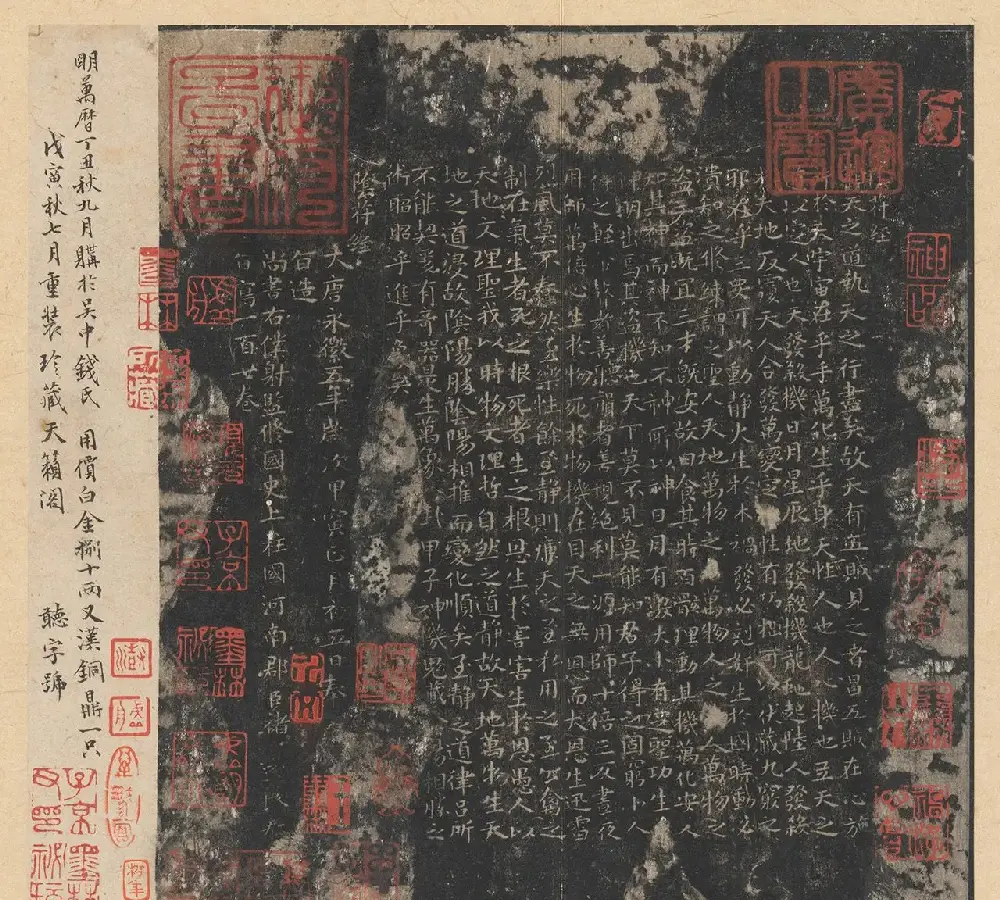 符經
天之道執天之行盡矣故天有五賊見之者昌五賊在心施
於天宇宙在乎手萬化生乎身天性人也人心機也立天之
以定人也天發殺機日月星辰地發殺機龍蛇起陸人發殺
天地反覆天人合發萬變定基性有巧拙可以伏藏九竅之
邪在乎三要可以動靜火生於木禍發必尅奸生於國時動必
潰知之修練謂之聖人天地萬物之盜萬物人之盜人萬物之
盜三盜既宜三才既安故曰食其時百骸理動其機萬化安人
知其神而神不知不神所以神日月有數大小有定聖功生
明出焉其盜機也天下莫不見莫能知君子得之固窮小人
得之輕命瞽者善聽聾者善視絕利一源用師十倍三反晝夜
用師萬倍心生於物死於物機在目天之無恩而大恩生迅雷
烈風莫不蠢然至樂性餘至靜則廉天之至私用之至公禽之
制在氣生者死之根死者生之根恩生於害害生於恩愚人以
天地文理聖我以時物文理哲自然之道靜故天地萬物生天
地之道浸故陰陽勝陰陽相推而變化順矣至靜之道律呂所
不能契爰有奇器是生萬象八卦甲子神機鬼藏陰陽相勝之
術昭昭乎進乎象矣
陰符經
大唐永徽五年歲次甲寅正月初五日奉
旨造
尚書右僕射監修國史上柱國河南郡臣褚遂良奉
旨寫一百廿卷
明萬曆丁丑秋九月購於吳中錢氏 用價白金捌十兩又漢銅鼎一只
戊寅秋七月重裝珍藏天籟閣 聽字號
神品
子京
墨林